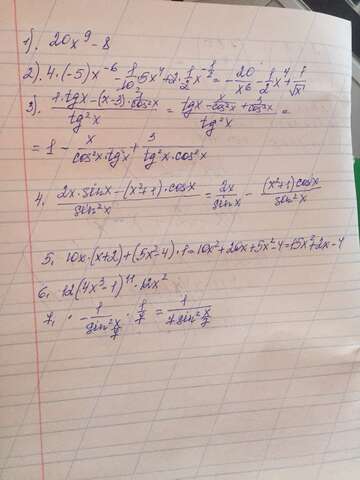 1). 20x⁹ - 8
2). 4·(-5)x⁻⁶ - 1/10·5x⁴ + 2·1/2 x^(-1/2) = -20/x⁶ - 1/2 x⁴ + 1/√x
3). (1·tgx - (x-3)·1/cos²x)/tg²x = (tgx - x/cos²x + 3/cos²x)/tg²x =
= 1 - x/(cos²x·tg²x) + 3/(tg²x·cos²x)
4. (2x·sinx - (x²+1)·cosx)/sin²x = 2x/sinx - (x²+1)cosx/sin²x
5. 10x·(x+2) + (5x²-4)·1 = 10x² + 20x + 5x² - 4 = 15x² + 2x - 4
6. 12(4x³-1)¹¹·12x²
7. · -1/(sin² x/7) · 1/7 = 1/(7sin² x/7)